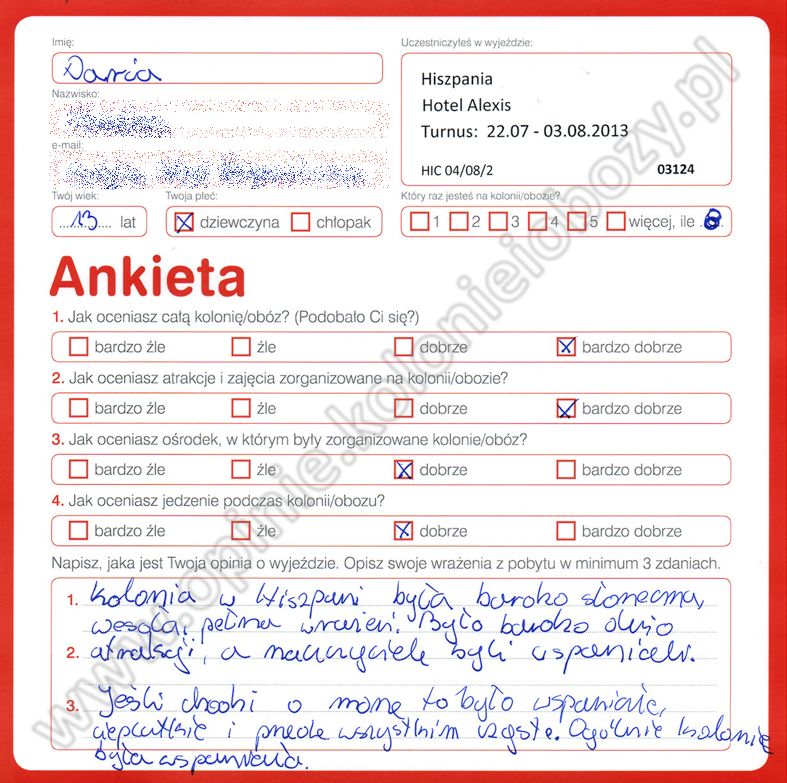 Imię:
Daria
Uczestniczyłeś w wyjeździe:
Hiszpania
Hotel Alexis
Turnus: 22.07 - 03.08.2013
HIC 04/08/2 03124
Nazwisko:
e-mail:
Twój wiek:
13 lat
Twoja płeć:
dziewczyna chłopak
Który raz jesteś na kolonii/obozie?
1 2 3 4 5 więcej, ile
Ankieta
1. Jak oceniasz całą kolonię/obóz? (Podobało Ci się?)
bardzo źle źle dobrze bardzo dobrze
2. Jak oceniasz atrakcje i zajęcia zorganizowane na kolonii/obozie?
bardzo źle źle dobrze bardzo dobrze
3. Jak oceniasz ośrodek, w którym były zorganizowane kolonie/obóz?
bardzo źle źle dobrze bardzo dobrze
4. Jak oceniasz jedzenie podczas kolonii/obozu?
bardzo źle źle dobrze bardzo dobrze
Napisz, jaka jest Twoja opinia o wyjeździe. Opisz swoje wrażenia z pobytu w minimum 3 zdaniach.
1. Kolonia w Hiszpani była bardzo słoneczna,
wesoła, pełna wrażeń. Było bardzo dużo
2. atrakcji, a nauczyciele byli wspaniali.
3. Jeśli chodzi o morze to było wspaniałe,
cieplutkie i przede wszystkim czyste. Ogólnie kolonia
była wspaniała.
www.opinie.kolonieiobozy.pl